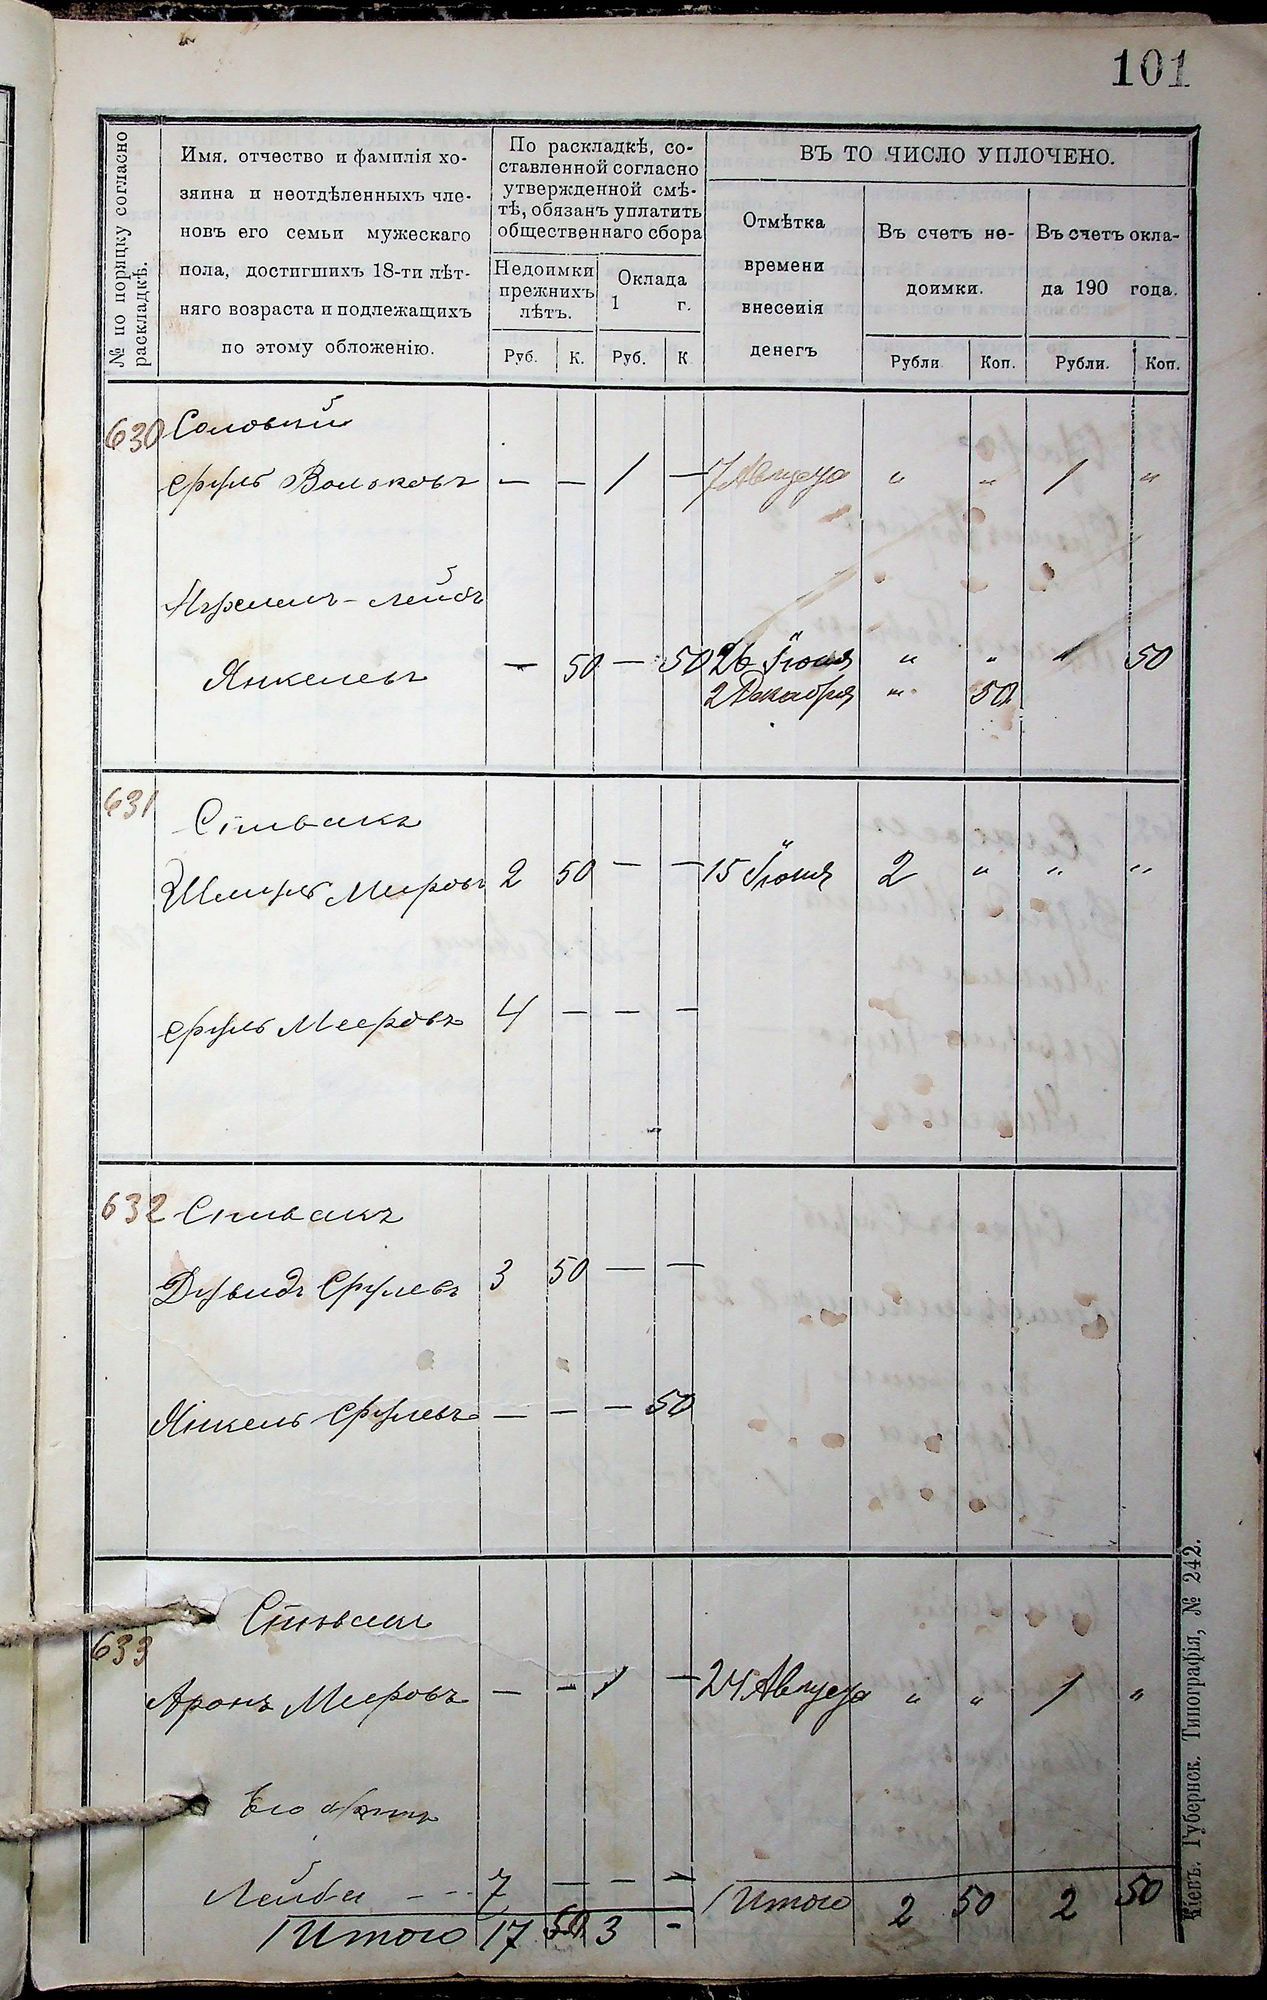 101
№ по порядку согласно
раскладкѣ.
Имя, отчество и фамилія хо-
зяина и неотдѣленныхъ чле-
новъ его семьи мужескаго
пола, достигшихъ 18-ти лѣт-
няго возраста и подлежащихъ
по этому обложенію.
По раскладкѣ, со-
ставленной согласно
утвержденной смѣ-
тѣ, обязанъ уплатить
общественнаго сбора
Недоимки
прежнихъ
лѣтъ.
Оклада
1 г.
Руб. К. Руб. К
ВЪ ТО ЧИСЛО УПЛОЧЕНО.
Отмѣтка
времени
внесенія
денегъ
Въ счетъ не-
доимки.
Въ счетъ окла-
да 190 года.
Рубли Коп. Рубли. Коп.
630 Соловій
Сруль Вольковъ — — 1 — 7 Августа " " 1 "
Лейбъ
Янкелевъ — 50 — 50 26 Іюня " " 50
2 Декабря " 50
631 Спивакъ
Шмуль Меировъ 2 50 — — 15 Іюня 2 " " "
Сруль Мееровъ 4 — — —
632 Спивакъ
Дувидъ Срулевъ 3 50 — —
Янкель Срулевъ — — — 50
633 Спивакъ
Аронъ Мееровъ — — 1 — 24 Августа " " 1 "
Его братъ
Лейба — 7 — — —
Итого 17 50 3 -
Итого 2 50 2 50
Кіевъ. Губернск. Типографія, № 242.